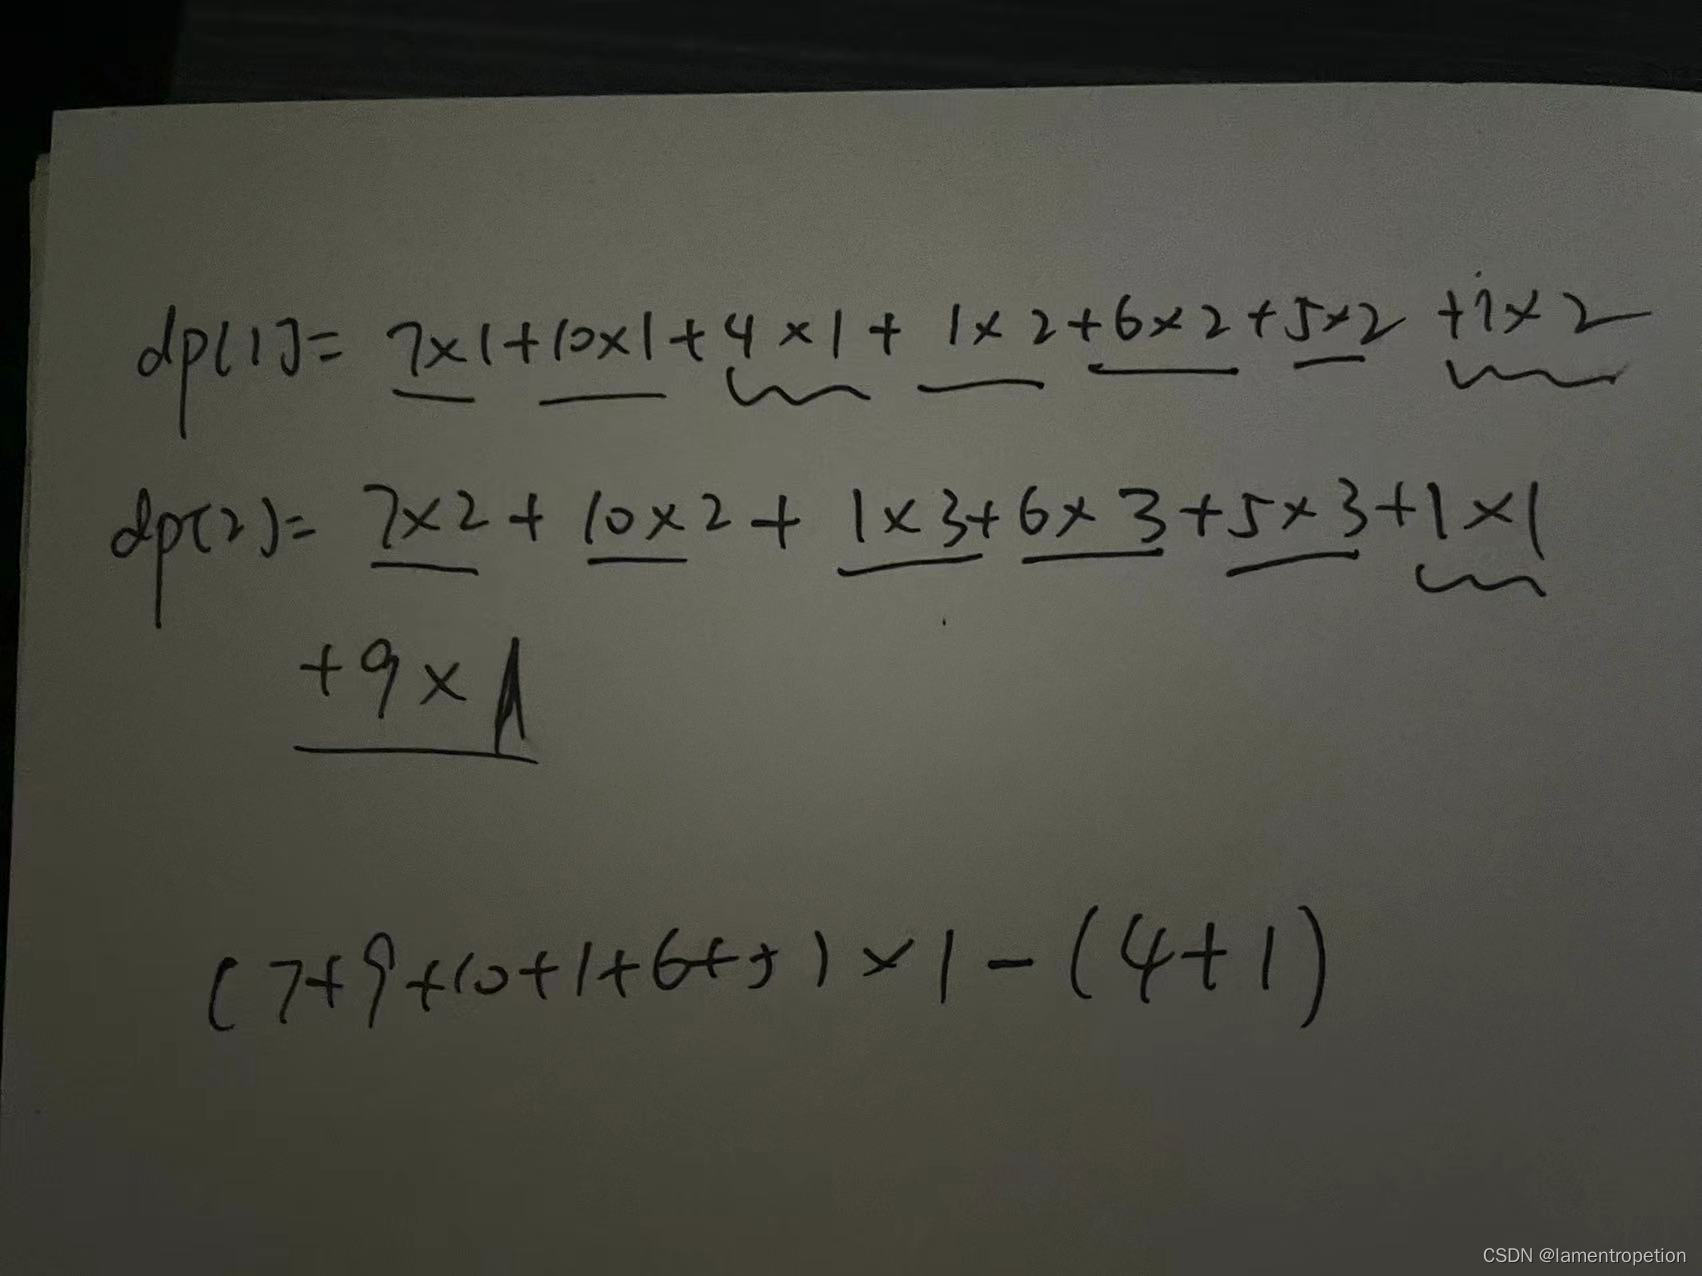 dp[1]= 7×1+10×1+4×1+ 1×2+6×2+5×2 +1×2
dp[2]= 7×2+ 10×2+ 1×3+6×3+5×3+1×1
+9×1
(7+9+10+1+6+5)×1-(4+1)
CSDN @lamentropetion